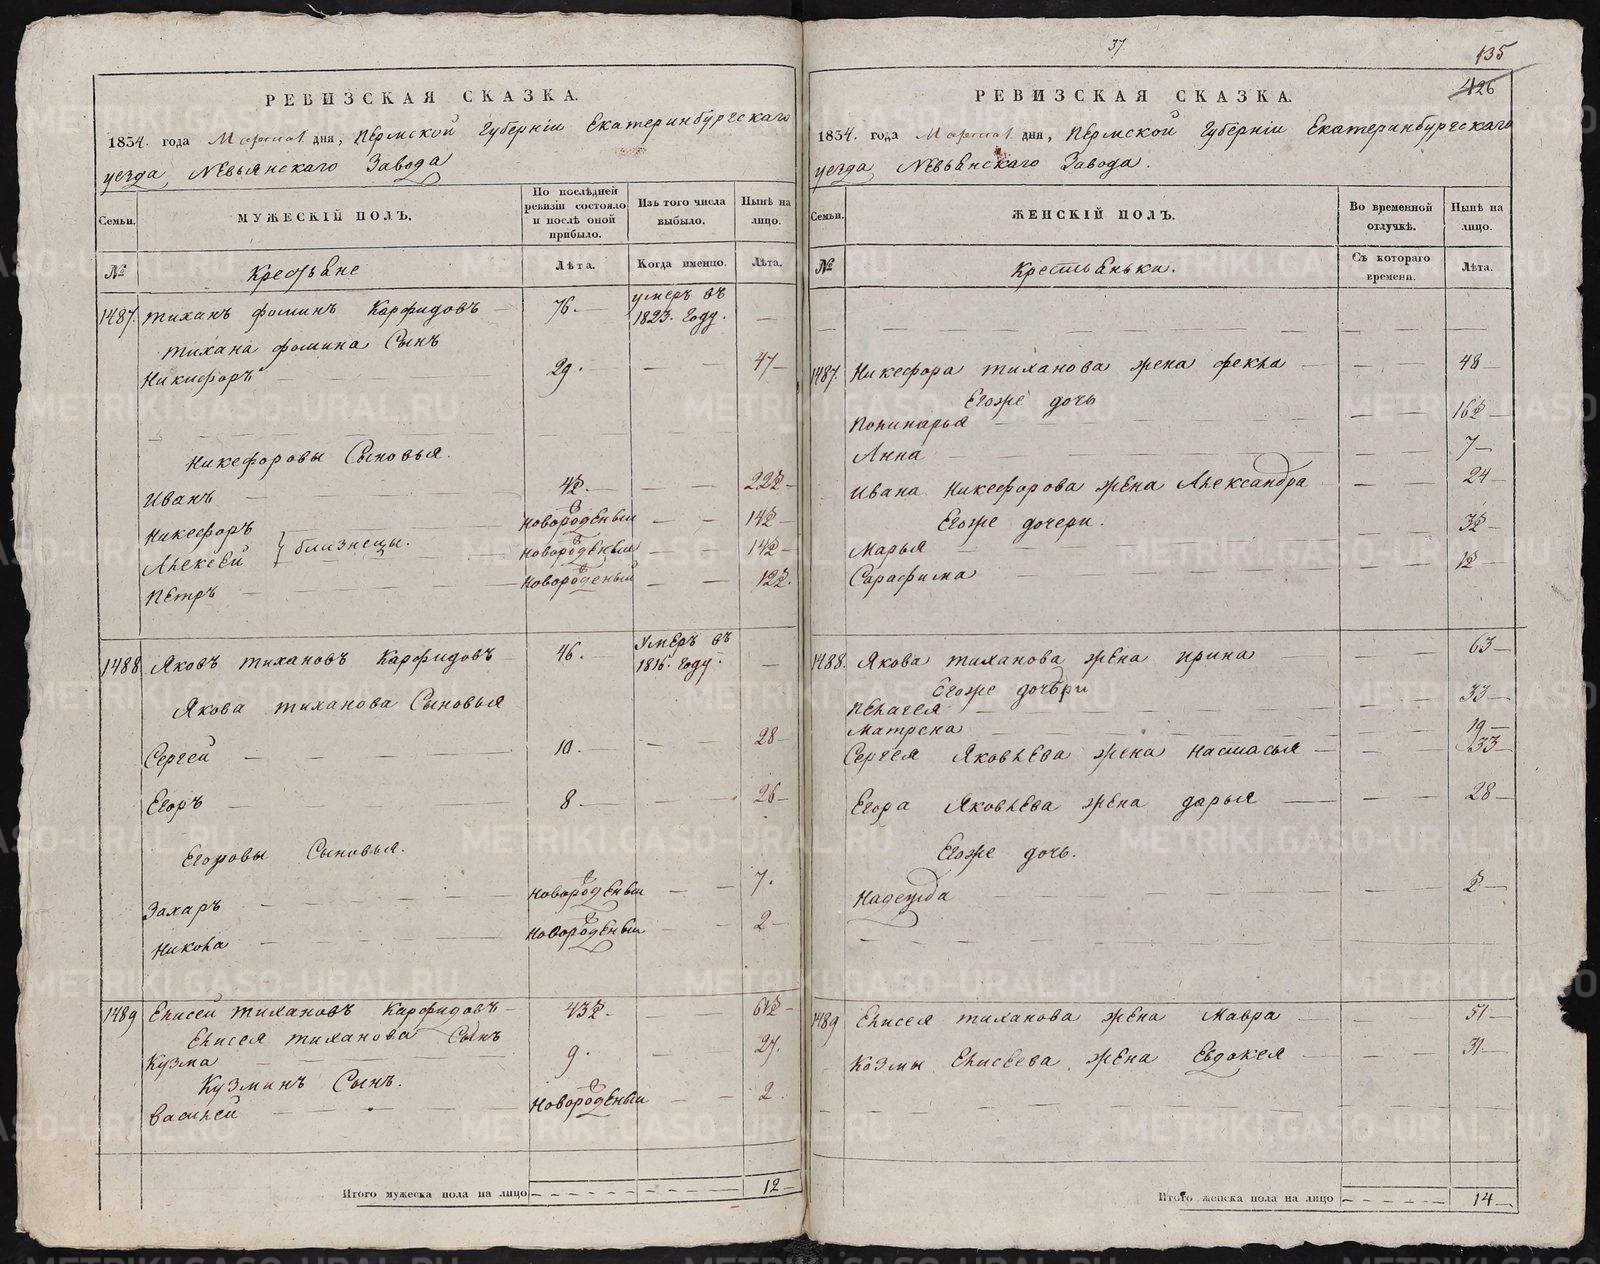 РЕВИЗСКАЯ СКАЗКА.
1834. года Марта 1 дня, Пермской Губерніи Екатеринбургскаго
уезда, Невьянскаго Завода
Семьи.
МУЖЕСКІЙ ПОЛЪ.
По послѣдней ревизіи состояло и послѣ оной прибыло.
Изъ того числа выбыло.
Нынѣ на лицо.
№
Крестьяне
Лѣта.
Когда именно.
Лѣта.
1487. Тиханъ Фоминъ Карфидовъ 76. умеръ въ 1823. году. —
Тихана Фомина Сынъ
Никифоръ 29. — — 47
Никефоровы Сыновья.
Иванъ 4½. — — 22½
Никефоръ новорожденный — — 14½
Алексей } близнецы. новорожденный — — 14½
Петръ новорожденный — — 12½.
1488 Яковъ Тихановъ Карфидовъ 46. Умеръ въ 1816. году. —
Якова Тиханова Сыновья
Сергей 10. — — 28
Егоръ 8 — — 26
Егоровы Сыновья.
Захаръ новорожденный — — 7.
Никола новорожденный — — 2
1489 Елисей Тихановъ Карфидовъ 43½. 61½
Елисея Тиханова Сынъ
Кузма 9. — — 27.
Кузминъ Сынъ.
Василей новорожденный — — 2
Итого мужеска пола на лицо 12
37
135
426
РЕВИЗСКАЯ СКАЗКА.
1834. года Марта 1 дня, Пермской Губерніи Екатеринбургскаго
уезда, Невьянскаго Завода.
Семьи.
ЖЕНСКІЙ ПОЛЪ.
Во временной отлучкѣ.
Нынѣ на лицо.
№
Крестьянки.
Съ котораго времени.
Лѣта.
1487. Никефора Тиханова жена Фекла — — 48
Егоже дочь
Полинарья — — 16½
Анна — — 7
Ивана Никефорова жена Александра — — 24
Егоже дочери.
Марья — — 3½
Сарафима — — 1½
1488. Якова Тиханова жена Ирина — — 63
Егоже дочери
Пелагея — — 33
Матрена — — 19
Сергея Яковлева жена Настасья — — 33
Егора Яковлева жена Дарья — — 28
Егоже дочь.
Надежда — — ½
1489 Елисея Тиханова жена Мавра — — 51
Козмы Елисеева жена Евдокея — — 31
Итого женска пола на лицо 14
METRIKI.GASO-URAL.RU